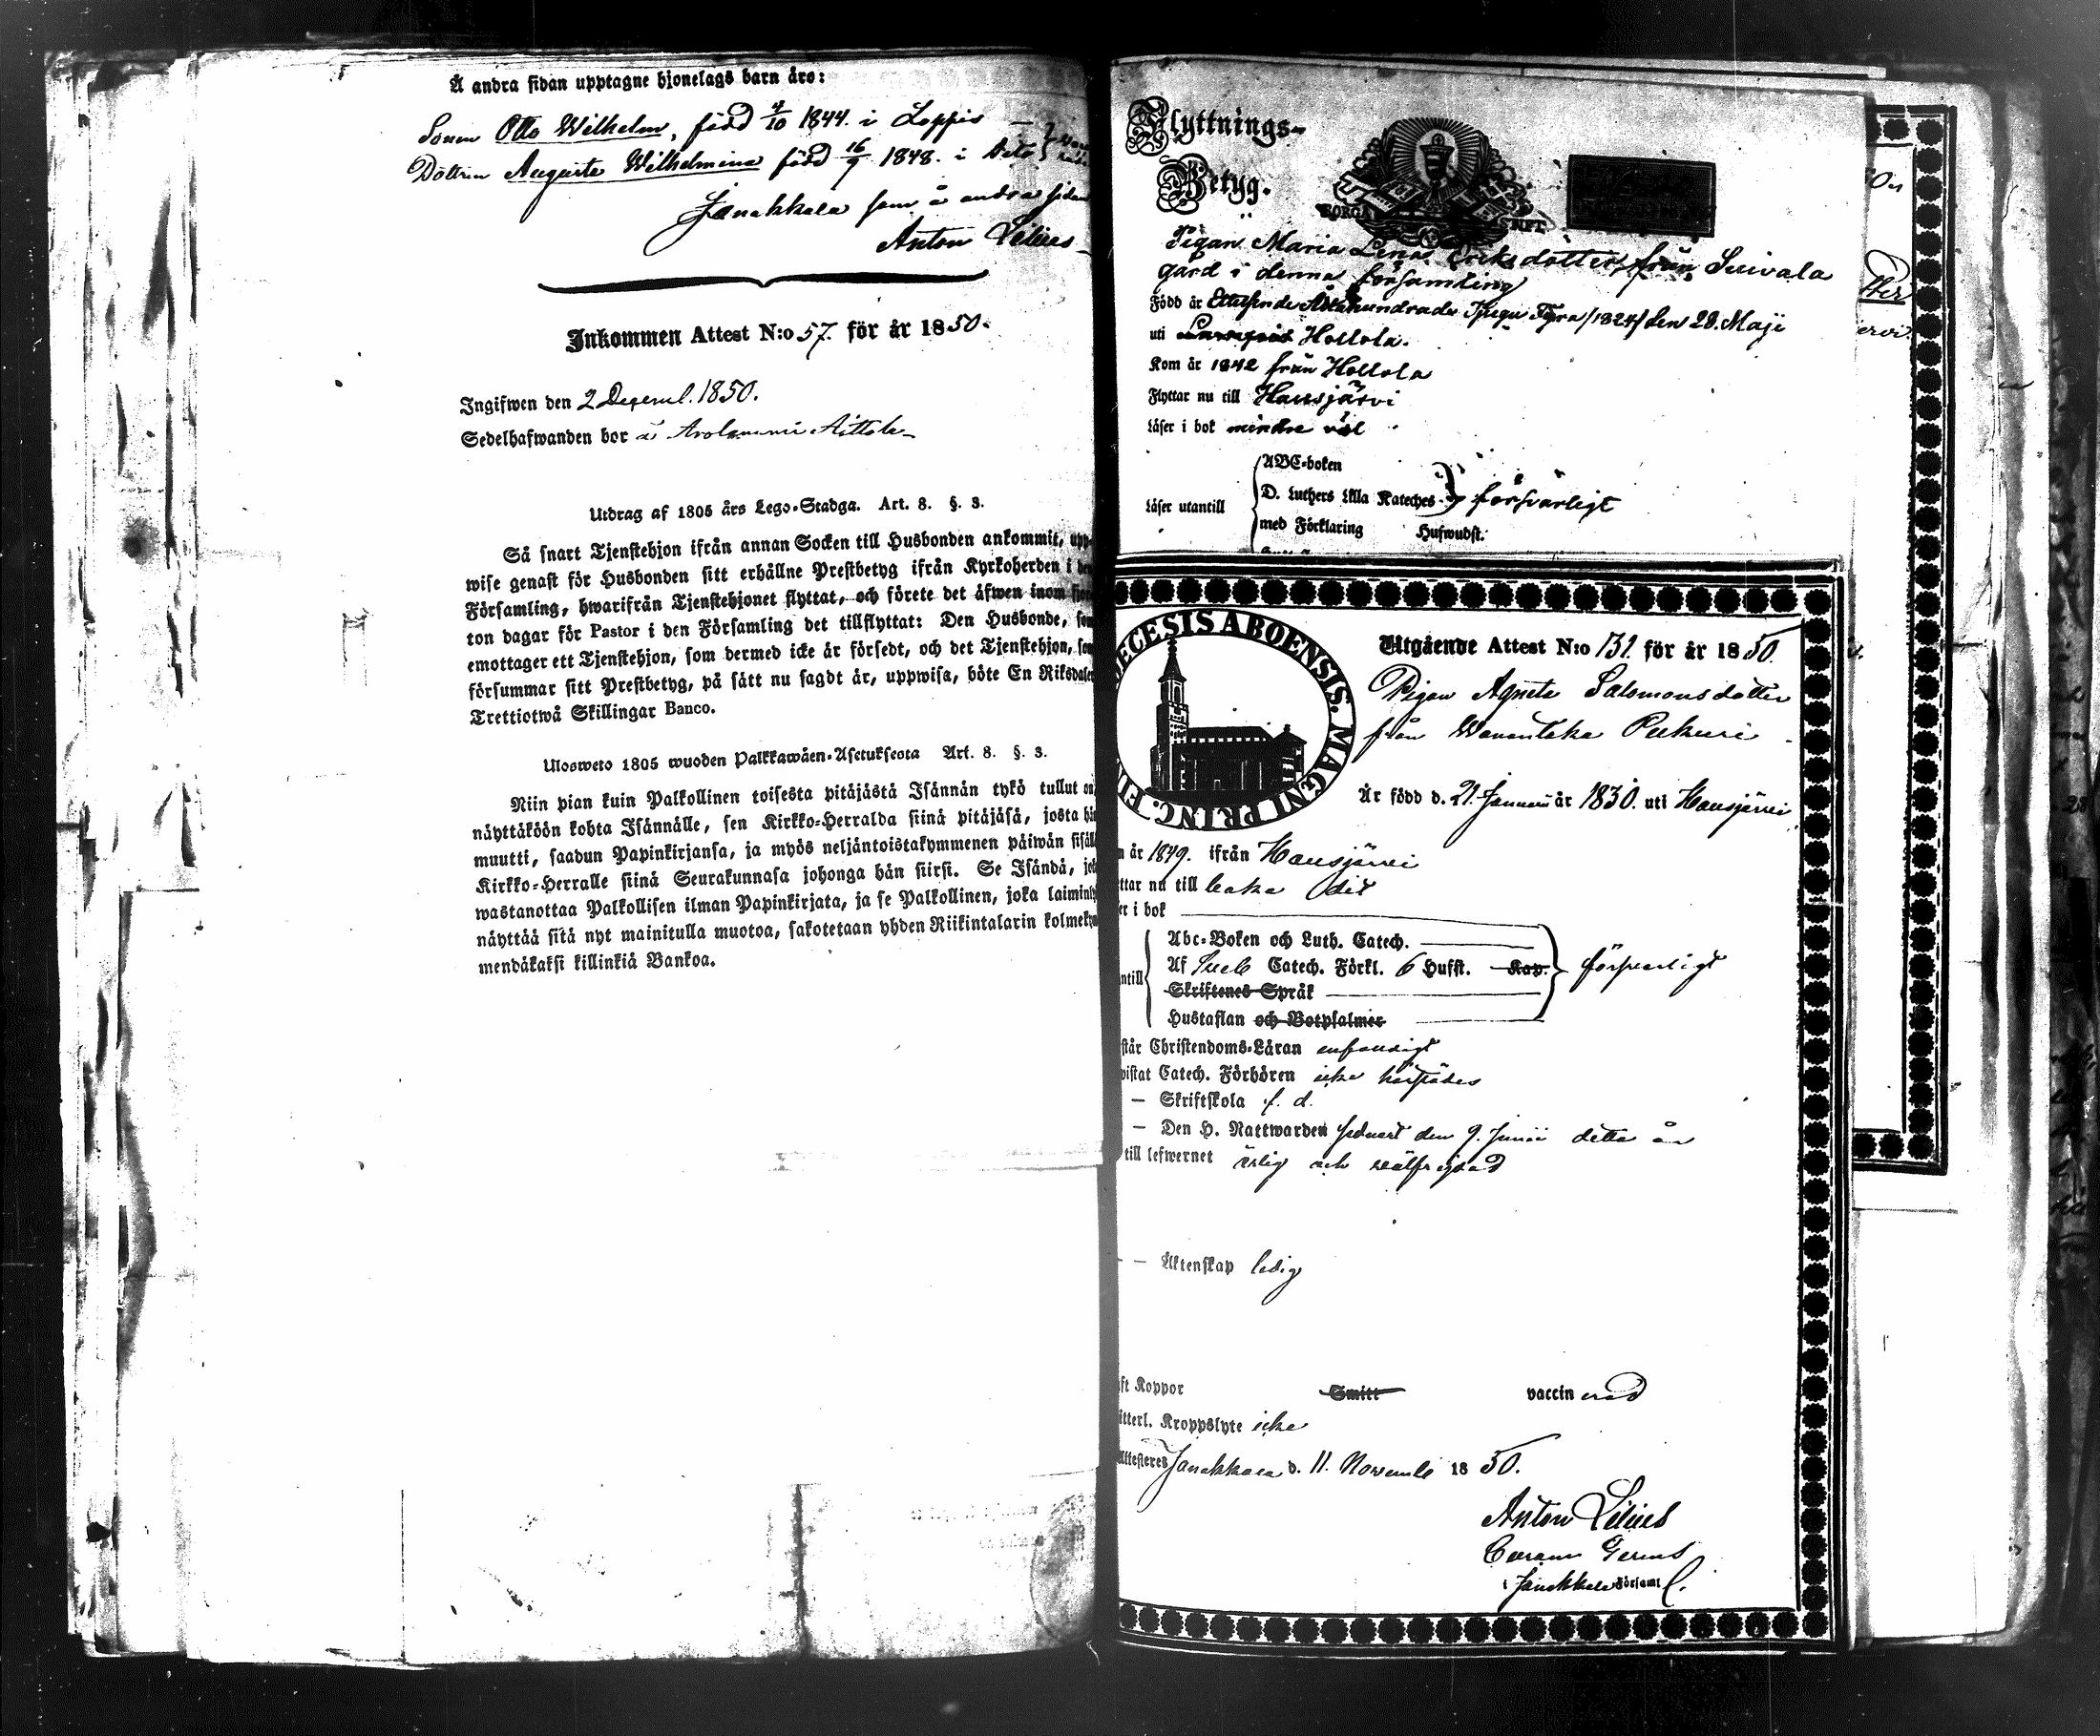 Å andra sidan upptagne hjonelags barn äro:
Sonen Otto Wilhelm, född 4/10 1844. i Loppis
Dottren Augusta Wilhelmina född 16/9 1848. i dito
Janakkala som å andra sidan
Anton Lilius
Inkommen Attest N:o 57. för år 1850.
Ingifwen den 2 Decemb. 1850.
Sedelhafwanden bor å Arolammi Aittola
Utdrag af 1805 års Lego-Stadga. Art. 8. §. 3.
Så snart Tjenstehjon ifrån annan Socken till Husbonden ankommit, upp-
wise genast för Husbonden sitt erhållne Prestbetyg ifrån Kyrkoherden i den
Församling, hwarifrån Tjenstehjonet flyttat, och förete det äfwen inom fjor-
ton dagar för Pastor i den Församling det tillflyttat: Den Husbonde, som
emottager ett Tjenstehjon, som dermed icke är försedt, och det Tjenstehjon, som
försummar sitt Prestbetyg, på sätt nu sagdt är, uppwisa, böte En Riksdaler
Trettiotwå Skillingar Banco.
Ulosweto 1805 wuoden Palkkawäen-Asetuksesta Art. 8. §. 3.
Niin pian kuin Palkollinen toisesta pitäjästä Isännän tykö tullut on,
näyttäköön kohta Isännälle, sen Kirkko-Herralda siinä pitäjäsä, josta hän
muutti, saadun Papinkirjansa, ja myös neljäntoistakymmenen päiwän sisällä
Kirkko-Herralle siinä Seurakunnasa johonga hän siirsi. Se Isändä, joka
wastanottaa Palkollisen ilman Papinkirjata, ja se Palkollinen, joka laiminlyö
näyttää sitä nyt mainitulla muotoa, sakotetaan yhden Riikintalarin kolmekym-
mendäkaksi killinkiä Bankoa.
Flyttnings-
Betyg.
BORGÅ STIFT
Pigan Maria Lena Eriksdotter, från Suivala
gård i denna församling
Född år Ettusende Åttahundrade Tjugu Fyra /1824/ den 28. Maji
uti Hollola.
Kom år 1842 från Hollola
Flyttar nu till Hausjärvi
Läser i bok mindre väl
Läser utantill
ABC-boken
D. Luthers Lilla Kateches försvarligt
med Förklaring Hufwudst.
DIOECESIS ABOENSIS. MAGNI PRINC. FI
Utgående Attest N:o 131. för år 1850.
Pigan Agneta Salomonsdotter
från Wanantaka Pukuri
Är född d. 21. Januari år 1830. uti Hausjärvi
år 1849. ifrån Hausjärvi
ttar nu till baka dit
er i bok
ntill
Abc-Boken och Luth. Catech.
Af Sveb Catech. Förkl. 6 Hufst. Kap. försvarligt
Skriftenes Språk
Hustaflan och Botpsalmer
står Christendoms-Läran enfaldigt
wistat Catech. Förhören icke härstädes
— Skriftskola f. d.
— Den H. Nattwarden sednast den 9. Junii detta år
till lefwernet ärlig och välfrejdad
— Äktenskap ledig
ft Koppor Smitt vaccinerad
itterl. Kroppslyte icke
Attesteras Janakkala d. 11. Novemb 1850.
Anton Lilius
i Janakkala Församl.